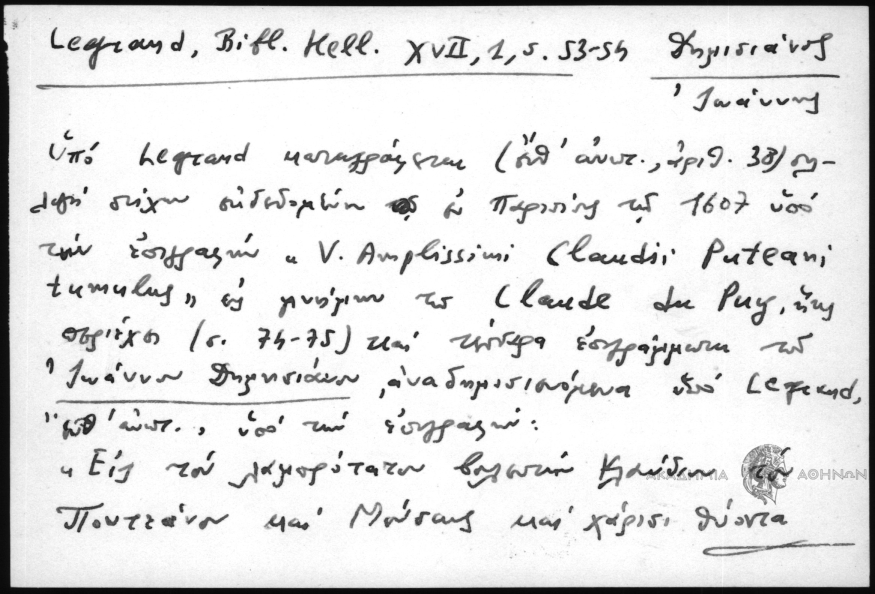 Legrand, Bibl. Hell. XVII, 1, s. 53-54 Δημισιάνος
Ἰωάννης
Ὑπό Legrand καταγράφεται (ἔνθ' ἀνωτ., ἀριθ. 38) συλ-
λογή στίχων ἐκδεδομένη ἐν Παρισίοις τῷ 1607 ὑπό
τήν ἐπιγραφήν « V. Amplissimi Claudii Puteani
tumulus » εἰς μνήμην τοῦ Claude du Puy, ἥτις
περιέχει (σ. 74-75) καί τέσσερα ἐπιγράμματα τοῦ
Ἰωάννου Δημισιάνου, ἀναδημοσιευόμενα ὑπό Legrand,
ἔνθ' ἀνωτ., ὑπό τήν ἐπιγραφήν:
« Εἰς τόν λαμπρότατον βουλευτήν Κλαύδιον τόν
Πουτεάνον καί Μούσαις καί χάρισι θύοντα
ΑΚΑΔΗΜΙΑ ΑΘΗΝΩΝ